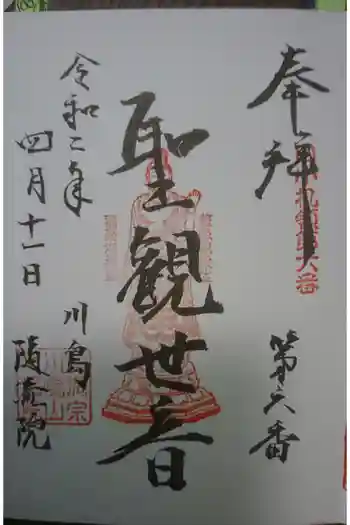 奉拝
第六番
聖観世音
令和二年
四月十一日
川島
随流院